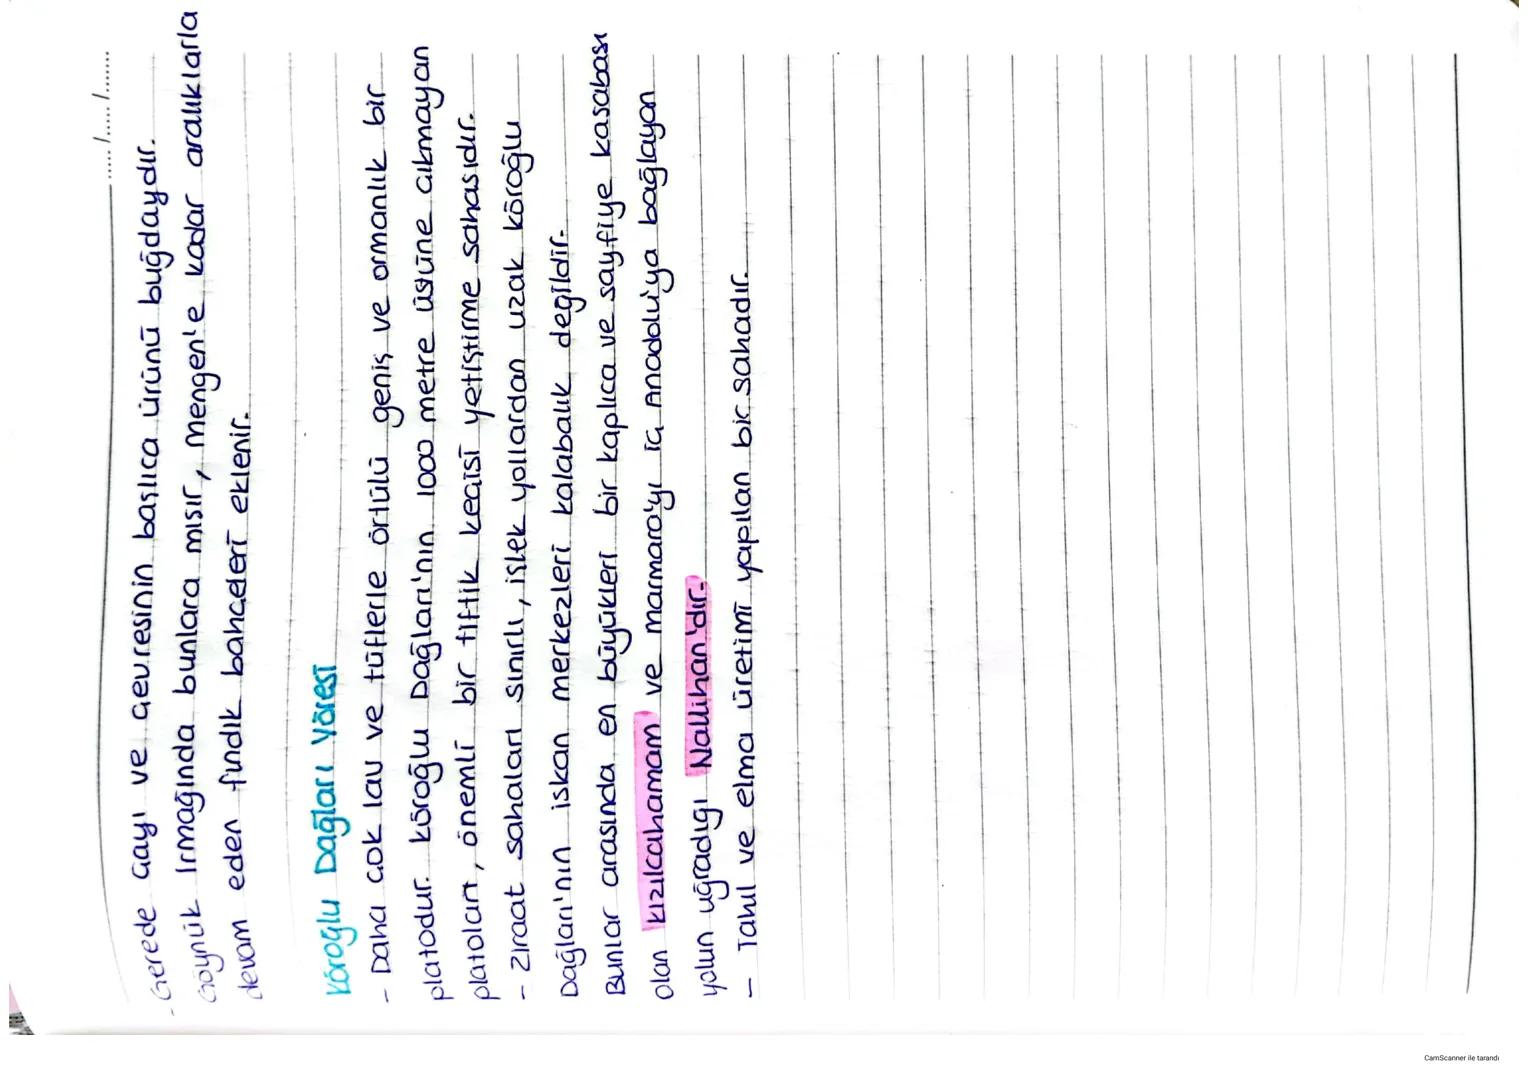 ..... /..... /.......
- Gerede Çayı ve çevresinin başlıca ürünü buğdaydır.
Göynük Irmağında bunlara mısır, mengen'e kadar aralıklarla
devam eden fındık bahçeleri eklenir.
Köroğlu Dağları Yöresi
- Daha çok lav ve tüflerle örtülü geniş ve ormanlık bir
platodur. Köroğlu Dağları'nın 1000 metre üstüne çıkmayan
platoları, önemli bir tiftik keçisi yetiştirme sahasıdır.
- Ziraat sahaları sınırlı, işlek yollardan uzak Köroğlu
Dağları'nın iskan merkezleri kalabalık değildir.
Bunlar arasında en büyükleri bir kaplıca ve sayfiye kasabası
olan Kızılcahamam ve marmara'yı iç Anadolu'ya bağlayan
yolun uğradığı Nallıhan'dır.
- Tahıl ve elma üretimi yapılan bir sahadır.
CamScanner ile tarandı